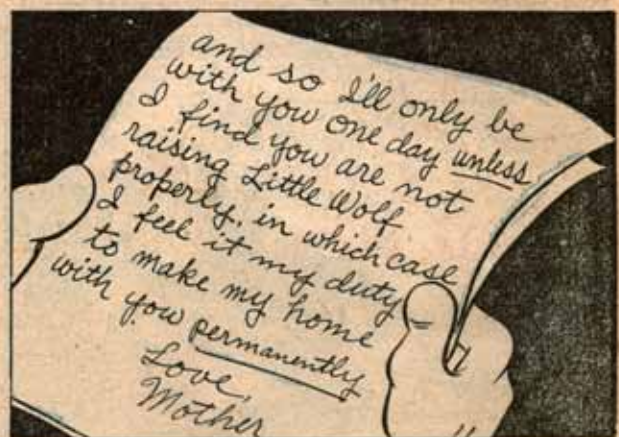 and so I'll only be
with you one day unless
I find you are not
raising Little Wolf
properly. in which case
I feel it my duty
to make my home
with you permanently
Love,
Mother